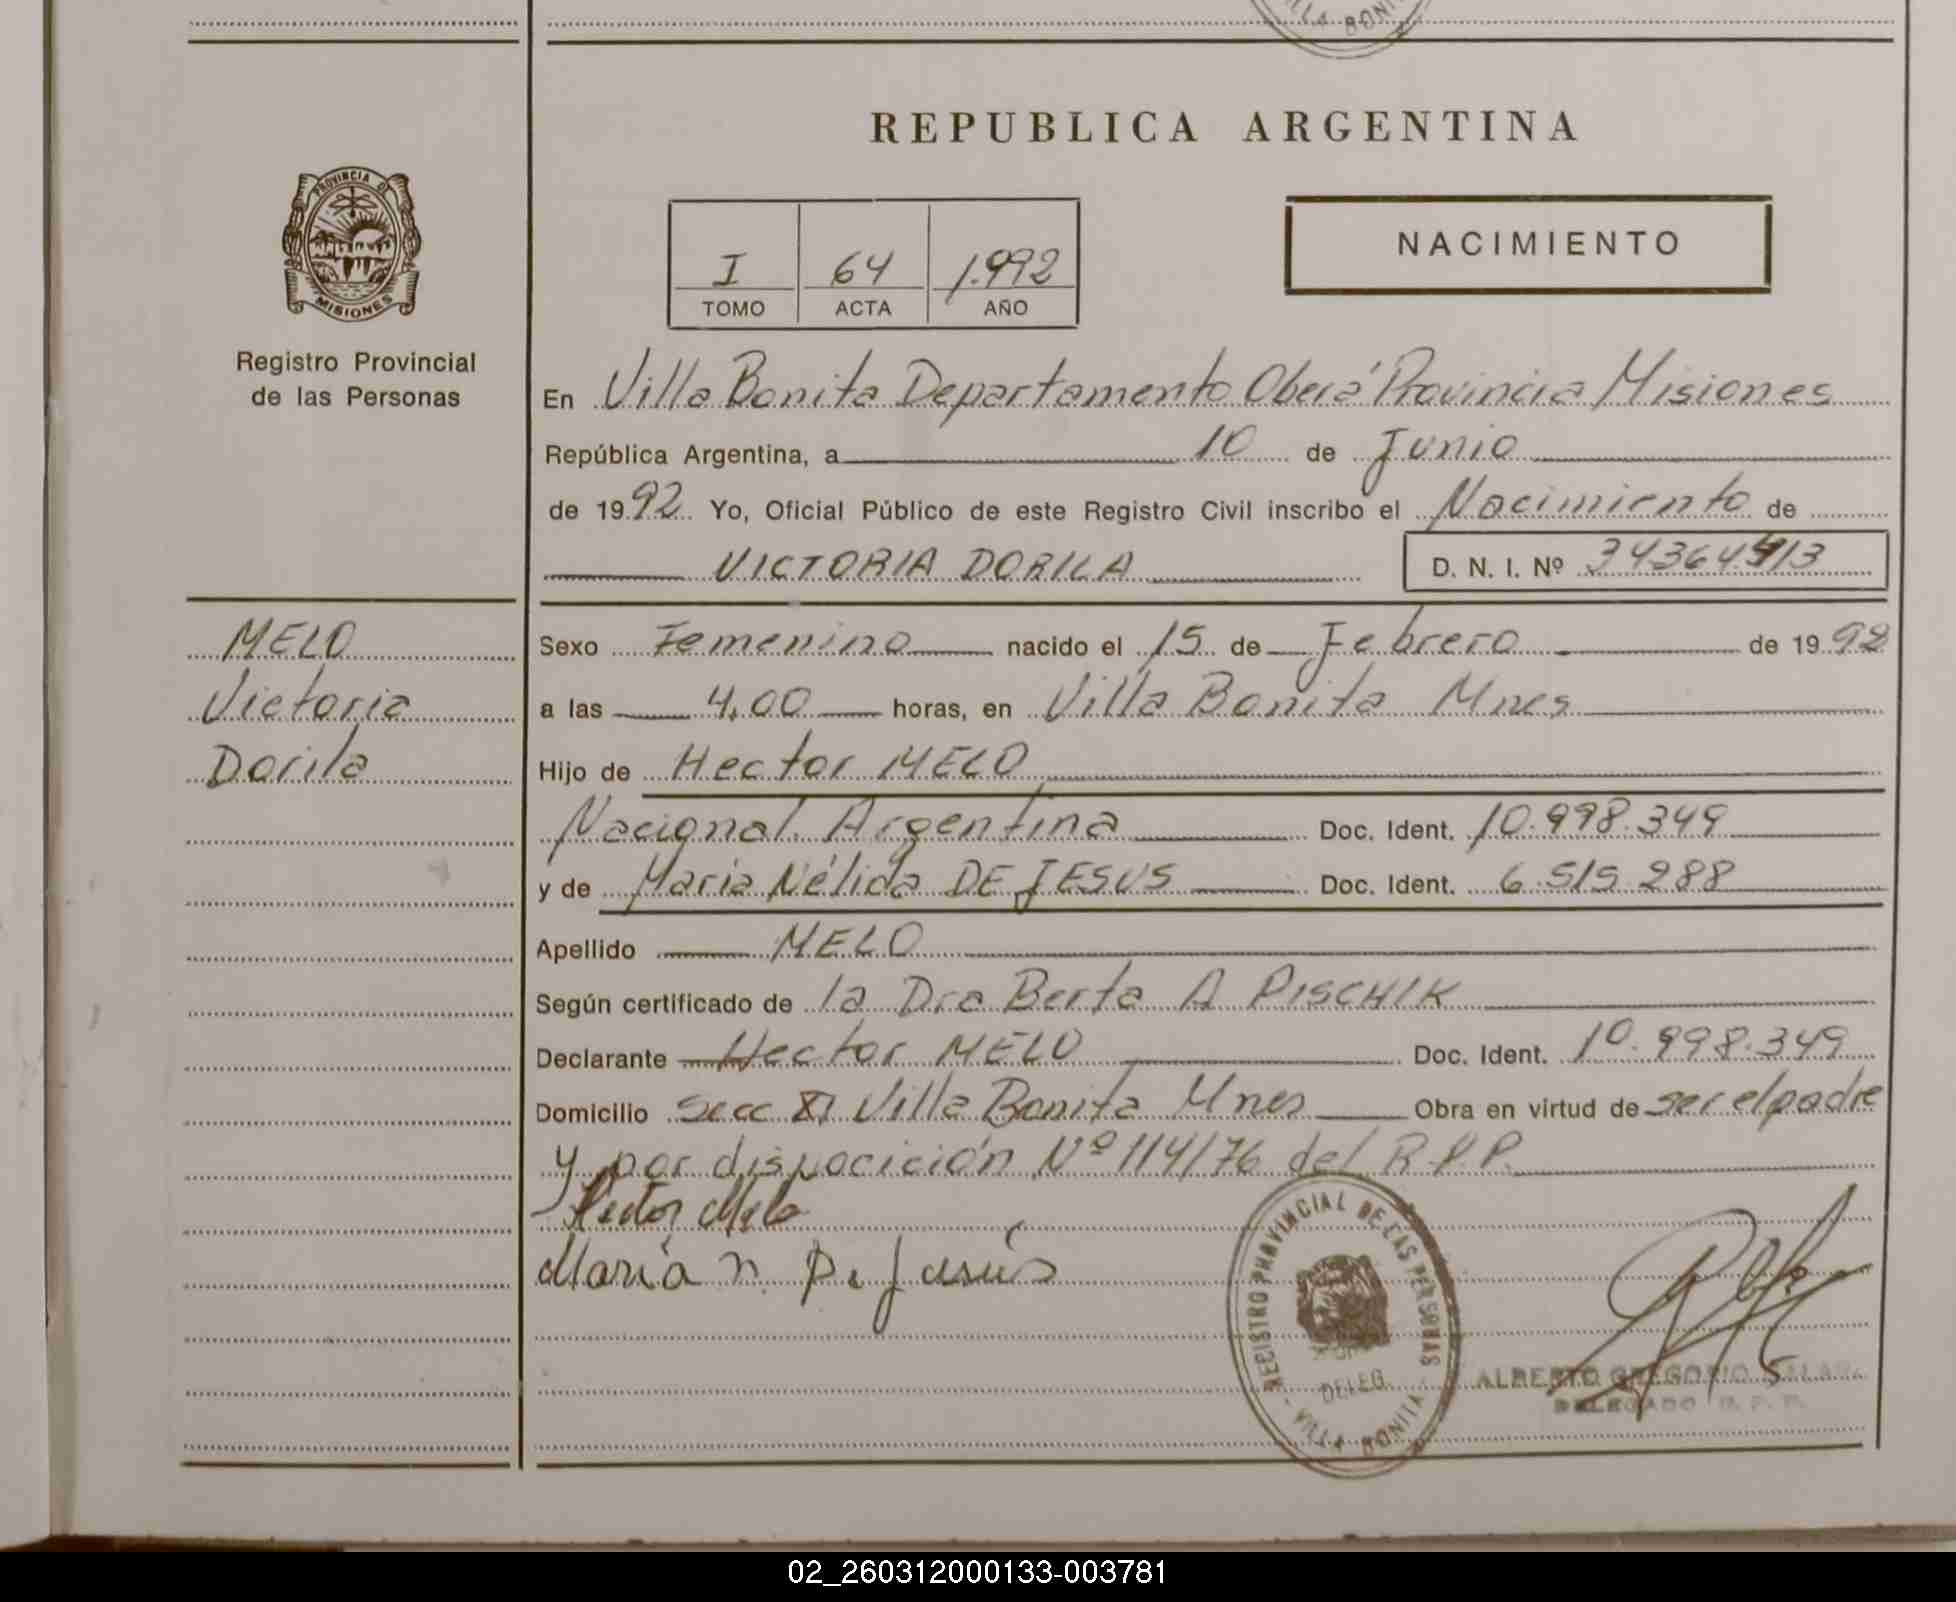 VILLA BONI
REPUBLICA ARGENTINA
PROVINCIA DE
MISIONES
Registro Provincial
de las Personas
I 64 1.992
TOMO ACTA AÑO
NACIMIENTO
En Villa Bonita Departamento Oberá Provincia Misiones
República Argentina, a 10 de Junio
de 1992 Yo, Oficial Público de este Registro Civil inscribo el Nacimiento de
VICTORIA DORILA D. N. I. Nº
MELO
Victoria
Dorila
Sexo Femenino nacido el 15 de Febrero de 1992
a las 4,00 horas, en Villa Bonita Mnes
Hijo de Hector MELO
Nacional. Argentina Doc. Ident. 10.998.349
y de Maria Nélida DE JESUS Doc. Ident. 6.515.288
Apellido MELO
Según certificado de la Dra Berta A PISCHIK
Declarante Hector MELO Doc. Ident. 10.998.349
Domicilio secc XI Villa Bonita Mnes Obra en virtud de ser el padre
y por dispocición Nº 114/76 del R.P.P.
Hector Melo
Maria n. De Jesús
REGISTRO PROVINCIAL DE LAS PERSONAS
DELEG.
- VILLA BONITA -
ALBERTO GREGORIO
DELEGADO R. P. P.
02_260312000133-003781